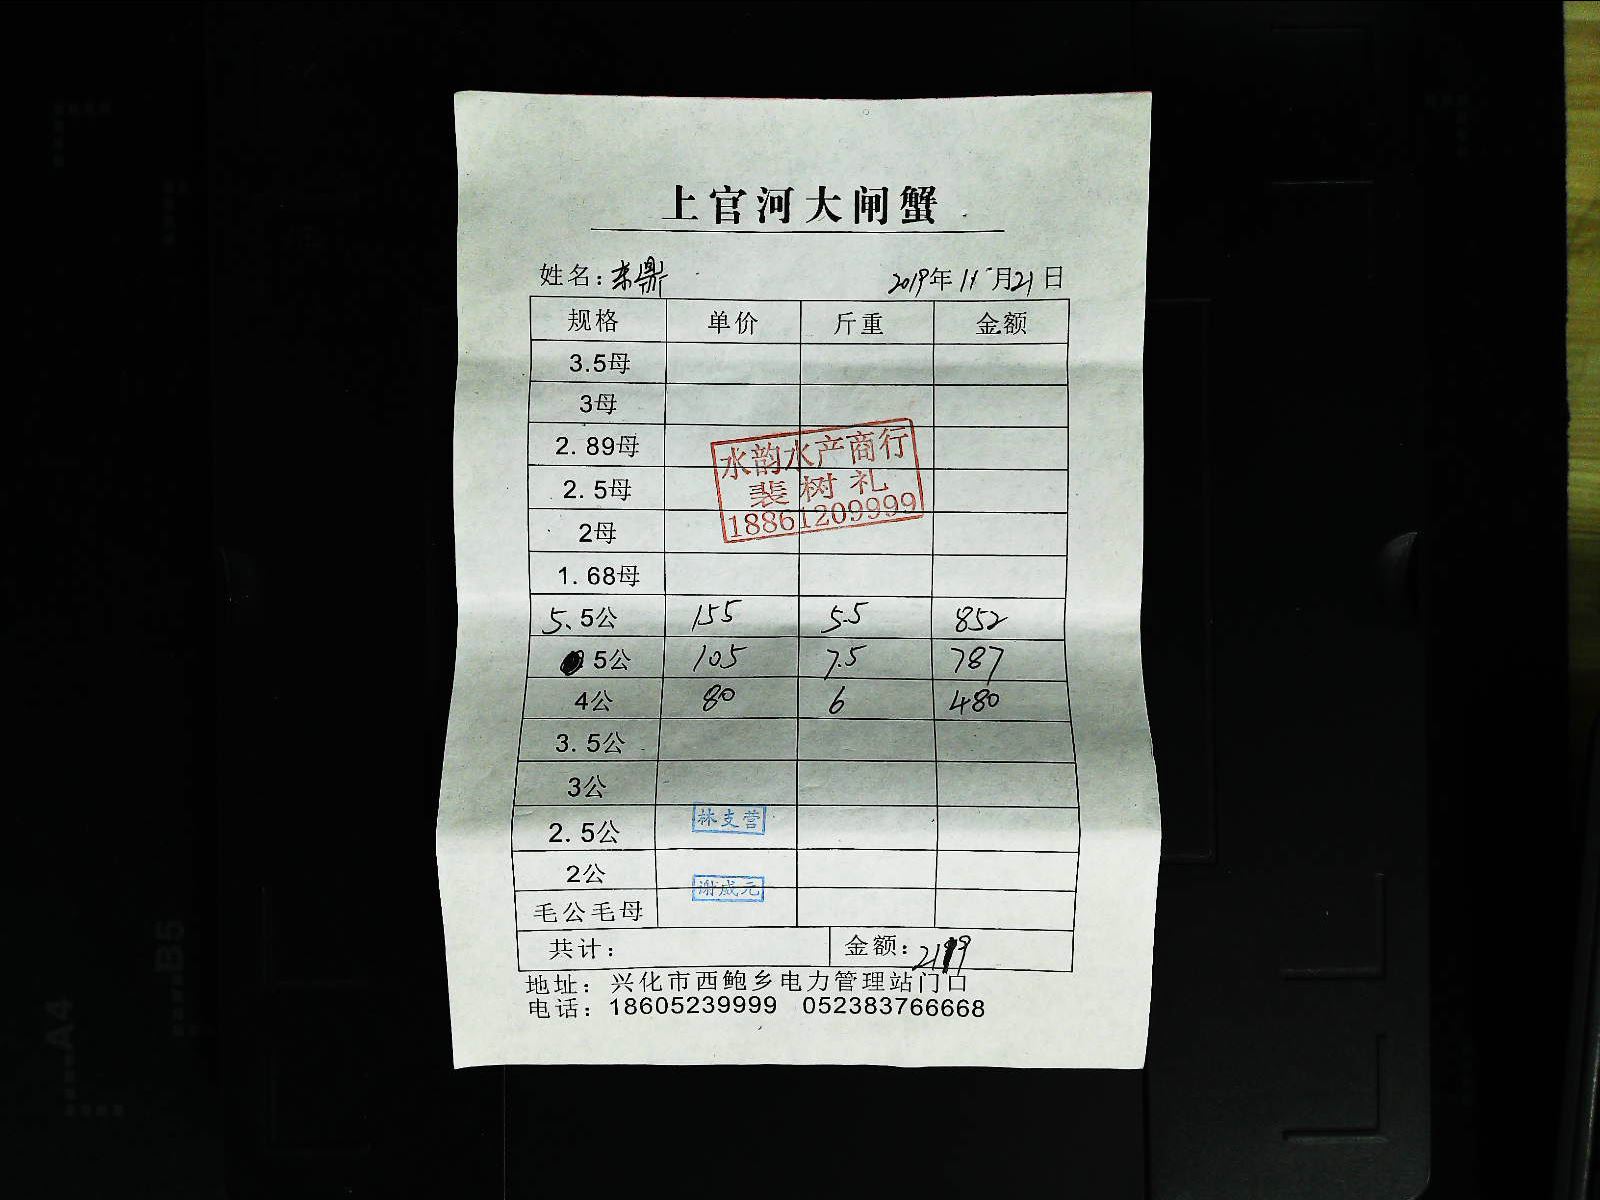 上官河大闸蟹
姓名：东鼎 2019年11月21日
规格 单价 斤重 金额
3.5母
3母
2.89母
2.5母
2母
1.68母
水韵水产商行
裴树礼
18861209999
5.5公 155 5.5 852
5公 105 7.5 787
4公 80 6 480
3.5公
3公
2.5公
林支营
2公
谢成元
毛公毛母
共计： 金额：2119
地址：兴化市西鲍乡电力管理站门口
电话：18605239999 052383766668